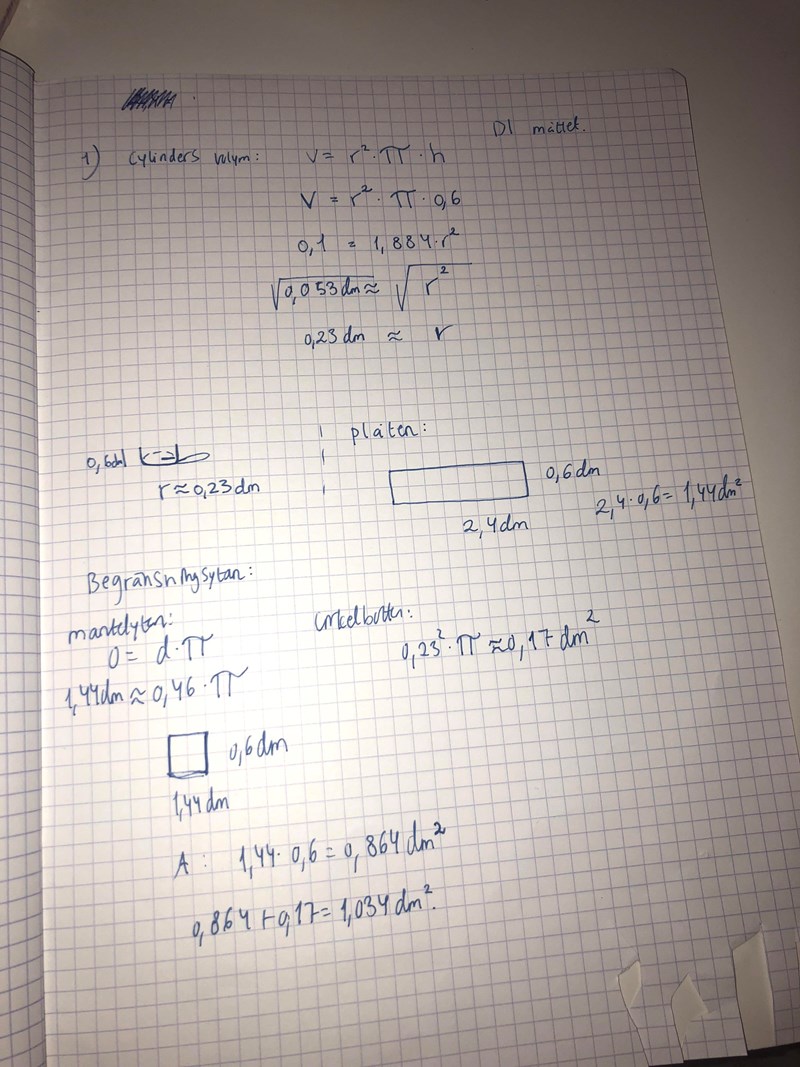 Dl måttet.
1) Cylinders volym: V = r² · π · h
V = r² · π · 0,6
0,1 = 1,884 · r²
√0,053 dm ≈ √r²
0,23 dm ≈ r
plåten:
0,6dm
r ≈ 0,23 dm
0,6 dm
2,4 dm
2,4 · 0,6 = 1,44 dm²
Begränsningsytan:
mantelyten:
O = d · π
1,44 dm ≈ 0,46 · π
cirkelbotten:
0,23² · π ≈ 0,17 dm²
0,6 dm
1,44 dm
A : 1,44 · 0,6 = 0,864 dm²
0,864 + 0,17 = 1,034 dm².